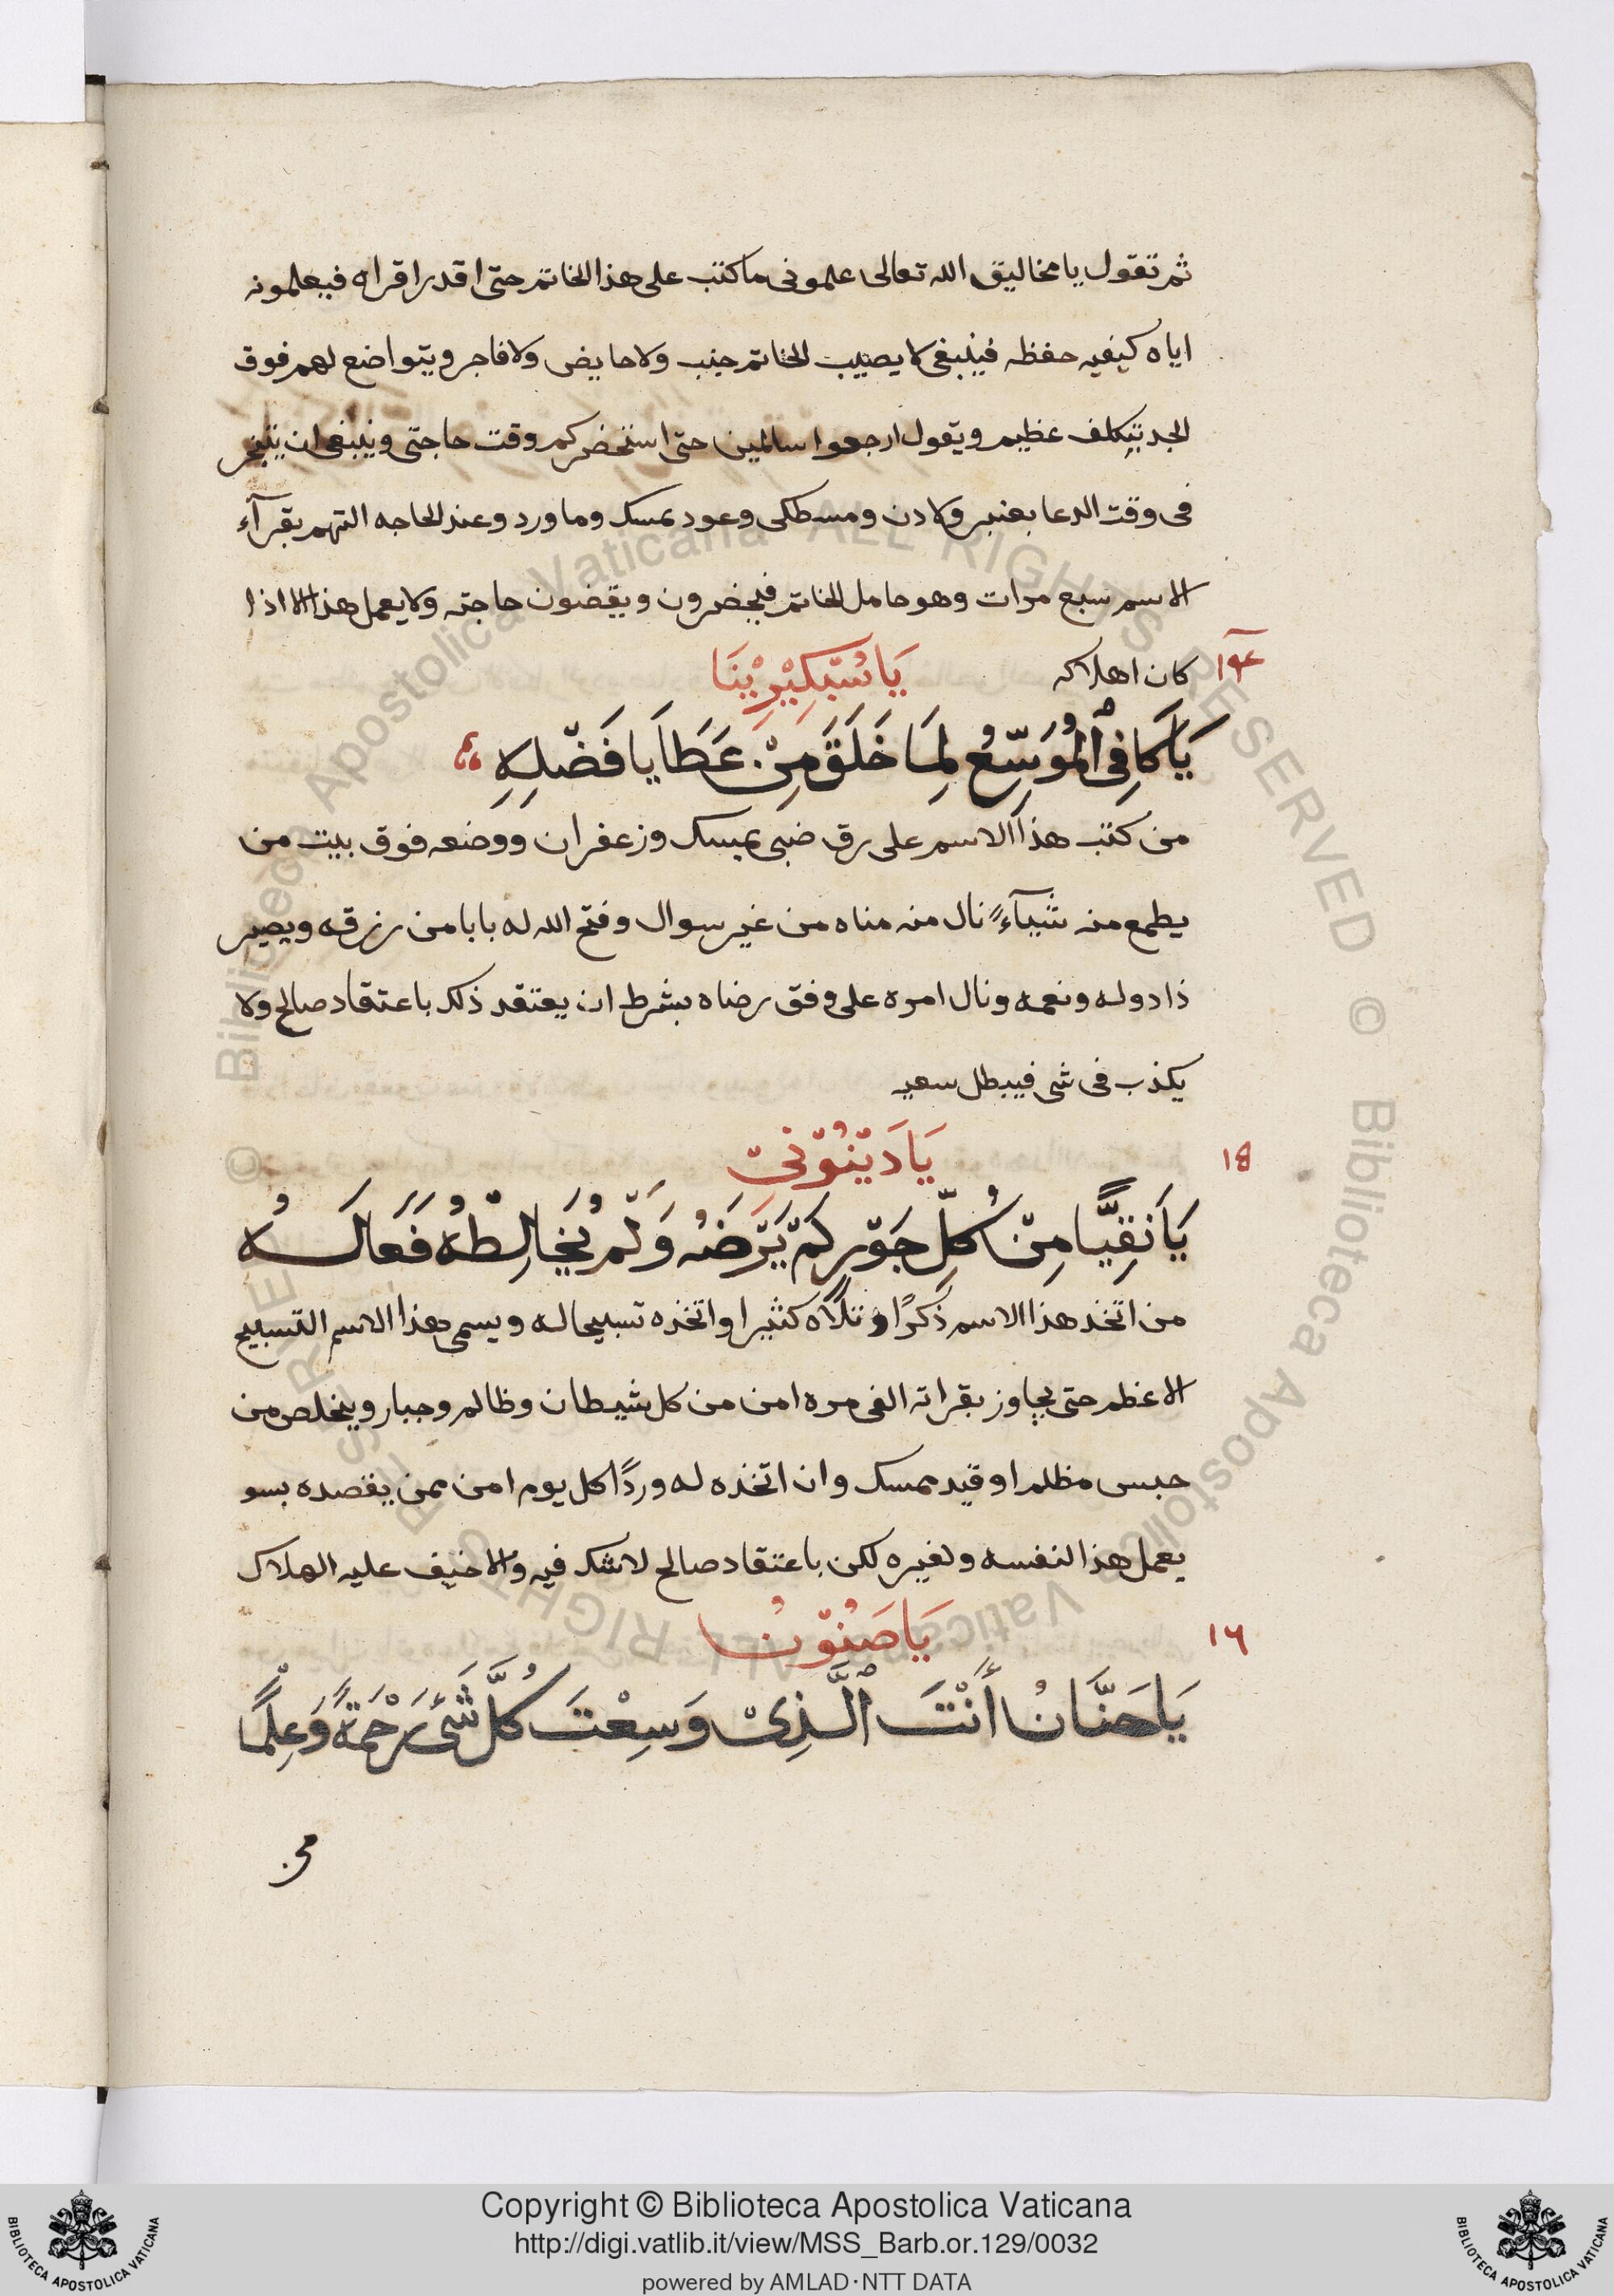 ثم تقول يا مخاليق الله تعالى علمونى ما كتب على هذا الخاتم حتى اقدر اقراه فيعلمونه
اياه كيفيه حفظه فينبغى لا يصيب الخاتم جنب ولا حايض ولا فاجر ويتواضع لهم فوق
الجد بتكلف عظيم ويقول ارجعوا سالمين حتى استحضركم وقت حاجتى وينبغى ان يتبخر
فى وقت الدعا بعنبر ولادن ومسطكى وعود بمسك وماورد وعند الحاجه التهم بقرآء
الاسم سبع مرات وهو حامل الخاتم فيحضرون ويقضون حاجته ولا يعمل هذا الا اذا
كان اهلا له
يَا سْتبِكِيْرِيْنَا
١٤
يَا كَافِىْ ٱلْمُوَسِّعُ لِمَا خَلَقَ مِنْ عَطَايَا فَضْلِهِ
من كتب هذا الاسم على رق ضبى بمسك وزعفران ووضعه فوق بيت من
يطمع منه شيآءً نال منه مناه من غير سوال وفتح الله له بابا من رزقه ويصير
ذا دوله ونعمه ونال امره على وفق رضاه بشرط ان يعتقد ذلك باعتقاد صالح ولا
يكذب فى شى فيبطل سعيه
١٥
يَا دَيْنُوْنِىْ
يَا نَقِيًّا مِنْ كُلِّ جَوْرٍ لَمْ يَرْضَهُ وَلَمْ يُخَالِطْهُ فَعَالَهُ
من اتخذ هذا الاسم ذكرًا وتلاه كثيرا واتخذه تسبيحا له ويسمى هذا الاسم التسبيح
الاعظم حتى يجاوز بقراته الفى مره امن من كل شيطان وظالم وجبار ويخلص من
حبس مظلم او قيد ممسك وان اتخذه له وردًا كل يوم امن ممن يقصده بسو
يعمل هذا لنفسه ولغيره لكن باعتقاد صالح لا شك فيه والا خيف عليه الهلاك
١٦
يَا صَنُوْنُ
يَا حَنَّانُ أَنْتَ ٱلَّذِىْ وَسِعْتَ كُلَّ شَىْءٍ رَحْمَةً وَعِلْمًا
من
Copyright © Biblioteca Apostolica Vaticana
http://digi.vatlib.it/view/MSS_Barb.or.129/0032
powered by AMLAD · NTT DATA
BIBLIOTECA APOSTOLICA VATICANA
BIBLIOTECA APOSTOLICA VATICANA
© Biblioteca Apostolica Vaticana ALL RIGHTS RESERVED
© Biblioteca Apostolica Vaticana ALL RIGHTS RESERVED